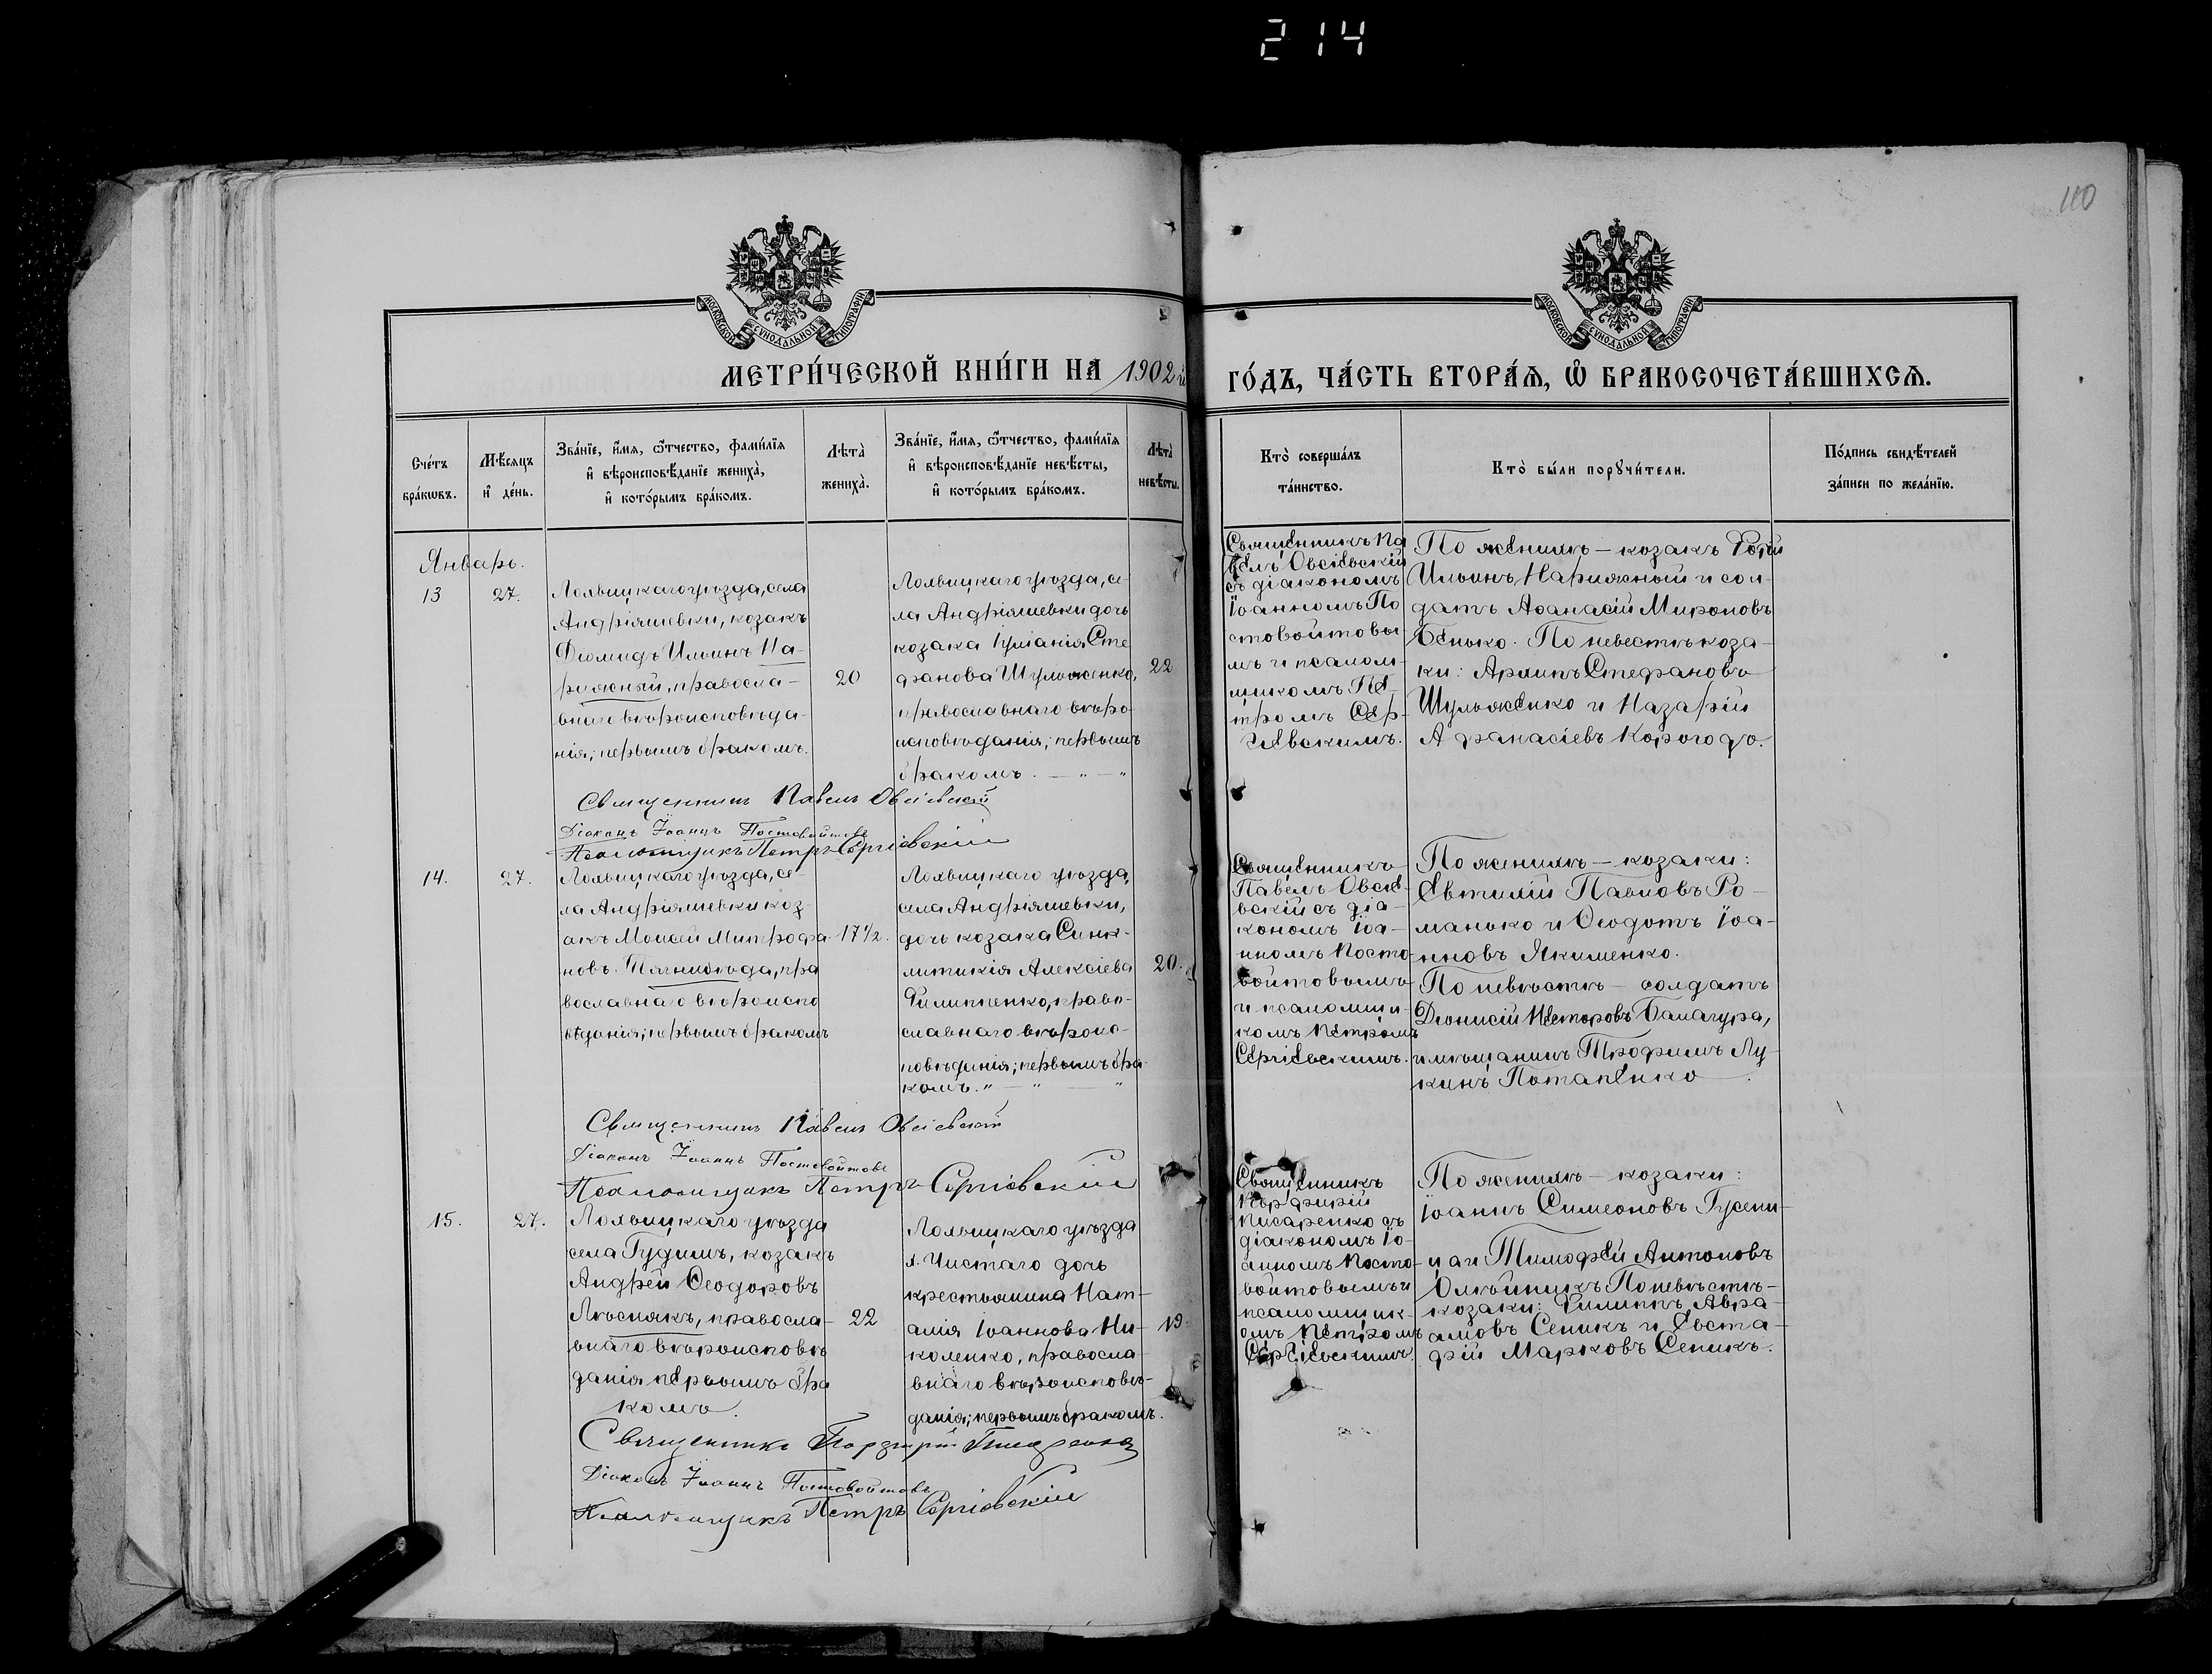 214
110
МОСКОВСКОЙ СУНОДАЛЬНОЙ ТИПОГРАФІИ
МОСКОВСКОЙ СУНОДАЛЬНОЙ ТИПОГРАФІИ
МЕТРИ́ЧЕСКОЙ КНИ́ГИ НА 1902й ГО́ДЪ, ЧА́СТЬ ВТОРА́Я, Ѡ БРАКОСОЧЕТА́ВШИХСЯ.
Сче́тъ
бра́кѡвъ.
Мѣ́сяцъ
и҆ де́нь.
Зва́нїе, и҆́мя, ѻ҆́тчество, фами́лїя
и҆ вѣроисповѣ́данїе жениха̀,
и҆ кото́рымъ бра́комъ.
Лѣта̀
жениха̀.
Зва́нїе, и҆́мя, ѻ҆́тчество, фами́лїя
и҆ вѣроисповѣ́данїе невѣ́сты,
и҆ кото́рымъ бра́комъ.
Лѣта̀
невѣ́сты.
Кто̀ соверша́лъ
та́инство.
Кто̀ бы́ли порꙋчи́тели.
По́дпись свидѣ́телей
за́писи по жела́нїю.
Январь.
13
27.
Лохвицкаго уѣзда, села
Андріяшевки, козакъ
Діомидъ Ильинъ На-
рижный, правосла-
внаго вѣроисповѣда-
нія; первымъ бракомъ.
20
Лохвицкаго уѣзда, се-
ла Андріяшевки дочь
козака Іуліанія Сте
фанова Шульженко,
православнаго вѣро-
исповѣданія; первымъ
бракомъ. — „ — „
22
Священникъ Па
велъ Овсіевскій
съ діакономъ
Іоанномъ По
стовойтовы-
мъ и псалом-
щикомъ Пе-
тромъ Сер-
гіевскимъ.
По женихѣ — козакъ
Ильинъ Нарижный и сол-
датъ Аѳанасій Мироновъ
Бенько. По невѣстѣ коза-
ки: Архипъ Стефановъ
Шульженко и Назарій
Афанасіевъ Корогодъ.
Священникъ Павелъ Овсіевскій
Діаконъ Іоаннъ Постовойтовъ
Псаломщикъ Петръ Сергіевскій
14.
27.
Лохвицкаго уѣзда, се
ла Андріяшевки коз-
акъ Моисей Митрофа-
новъ Тягнибѣда, пра
вославнаго вѣроиспо
вѣданія; первымъ бракомъ
17 1/2.
Лохвицкаго уѣзда,
села Андріяшевки,
дочь козака Синк-
литикія Алексіева
Филиппенко, право-
славнаго вѣроис-
повѣданія; первымъ бра-
комъ. „ — „ — „
20.
Священникъ
Павелъ Овсіе-
вскій съ діа-
кономъ Іоа-
нномъ Посто-
войтовымъ
и псаломщи-
комъ Петромъ
Сергіевскимъ.
По женихѣ — козаки:
Евтихій Павловъ Ро-
манько и Ѳеодотъ Іоа-
нновъ Якименко.
По невѣстѣ — солдатъ
Діонисій Несторовъ Балагура,
и мѣщанинъ Трофимъ Лу-
кинъ Потапенко.
Священникъ Павелъ Овсіевскій
Діаконъ Іоаннъ Постовойтовъ
Псаломщикъ Петръ Сергіевскій
15.
27.
Лохвицкаго уѣзда
села Гудимъ, козакъ
Андрей Ѳеодоровъ
Лѣснякъ, правосла-
внаго вѣроисповѣ
данія первымъ бра
комъ.
22
Лохвицкаго уѣзда
х. Чистаго дочь
крестьянина Нат-
алія Іоаннова Ни-
коленко, правосла-
внаго вѣроисповѣ-
данія; первымъ бракомъ.
19.
Священникъ
Порфирій
Писаренко съ
діакономъ Іо-
анномъ Посто-
войтовымъ и
псаломщик-
омъ Петромъ
Сергіевскимъ.
По женихѣ — козаки:
Іоаннъ Симеоновъ Гусени-
ца и Тимофей Антоновъ
Олѣйникъ По невѣстѣ —
козаки: Филиппъ Авра-
амовъ Сепикъ и Евста-
фій Марковъ Сепикъ.
Священникъ Порфирій Писаренко
Діаконъ Іоаннъ Постовойтовъ
Псаломщикъ Петръ Сергіевскій